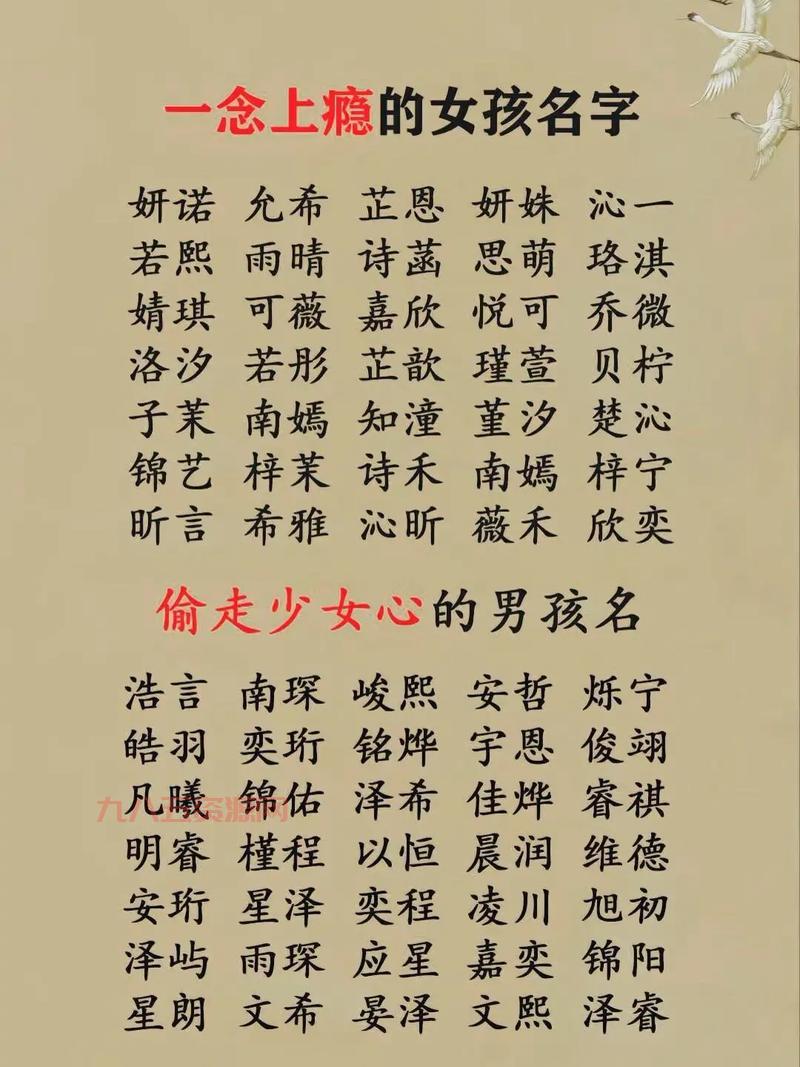 一念上瘾的女孩名字
妍诺 允希 芷恩 妍姝 沁一
若熙 雨晴 诗菡 思萌 珞淇
婧琪 可薇 嘉欣 悦可 乔微
洛汐 若彤 芷歆 瑾萱 贝柠
子茉 南嫣 知潼 堇汐 楚沁
锦艺 梓茉 诗禾 南嫣 梓宁
昕言 希雅 沁昕 薇禾 欣奕
偷走少女心的男孩名
浩言 南琛 峻熙 安哲 烁宁
皓羽 奕珩 铭烨 宇恩 俊翊
凡曦 锦佑 泽希 佳烨 睿祺
九八五资源网
明睿 槿程 以恒 晨润 维德
安珩 星泽 奕程 凌川 旭初
泽屿 雨琛 应星 嘉奕 锦阳
星朗 文希 晏泽 文熙 泽睿